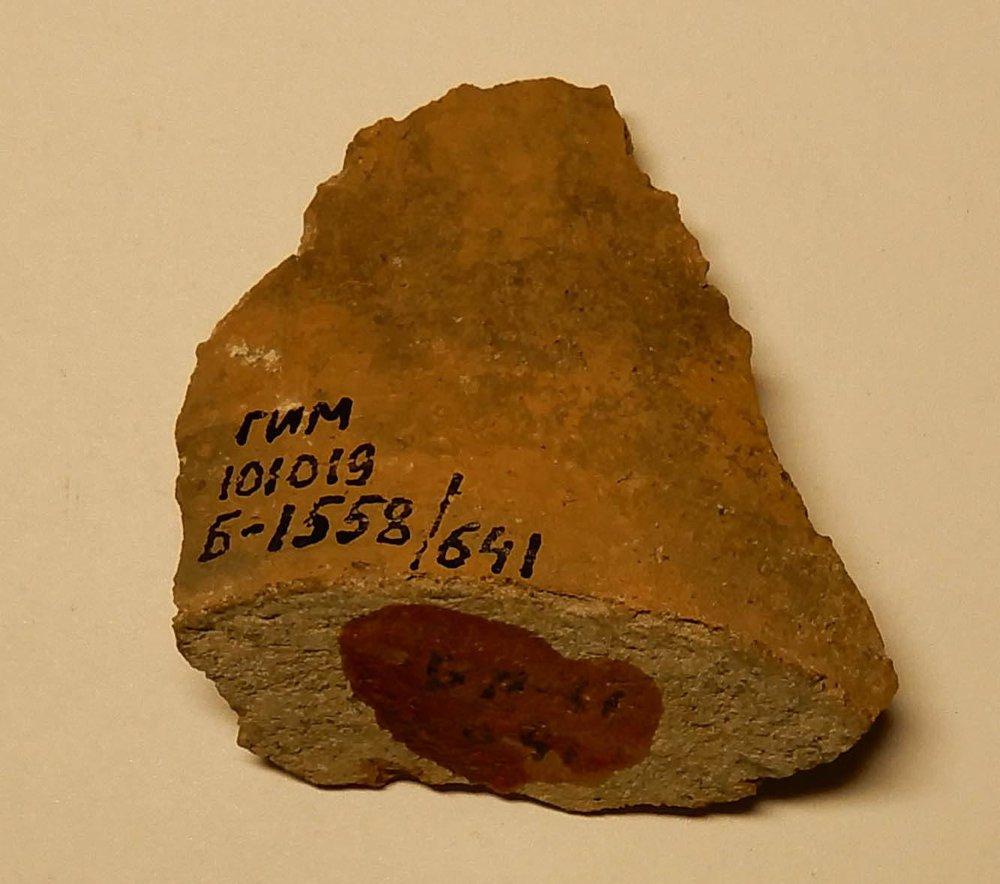 ГИМ
101019
Б-1558/641